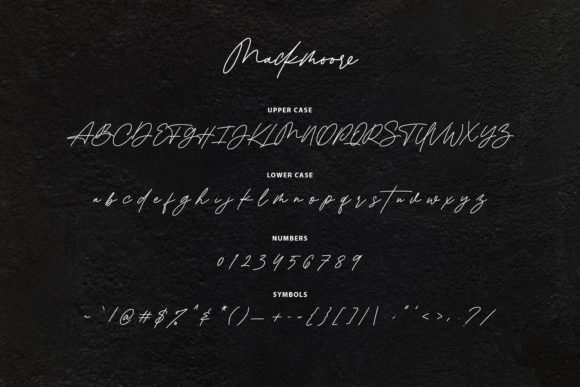 Mackmoore
UPPER CASE
ABCDEFGHIJKLMNOPQRSTUVWXYZ
LOWER CASE
a b c d e f g h i j k l m n o p q r s t u v w x y z
NUMBERS
0 1 2 3 4 5 6 7 8 9
SYMBOLS
~ ` ! @ # $ % ^ & * ( ) — + - = { } [ ] | \ : " ' < > , . ? /